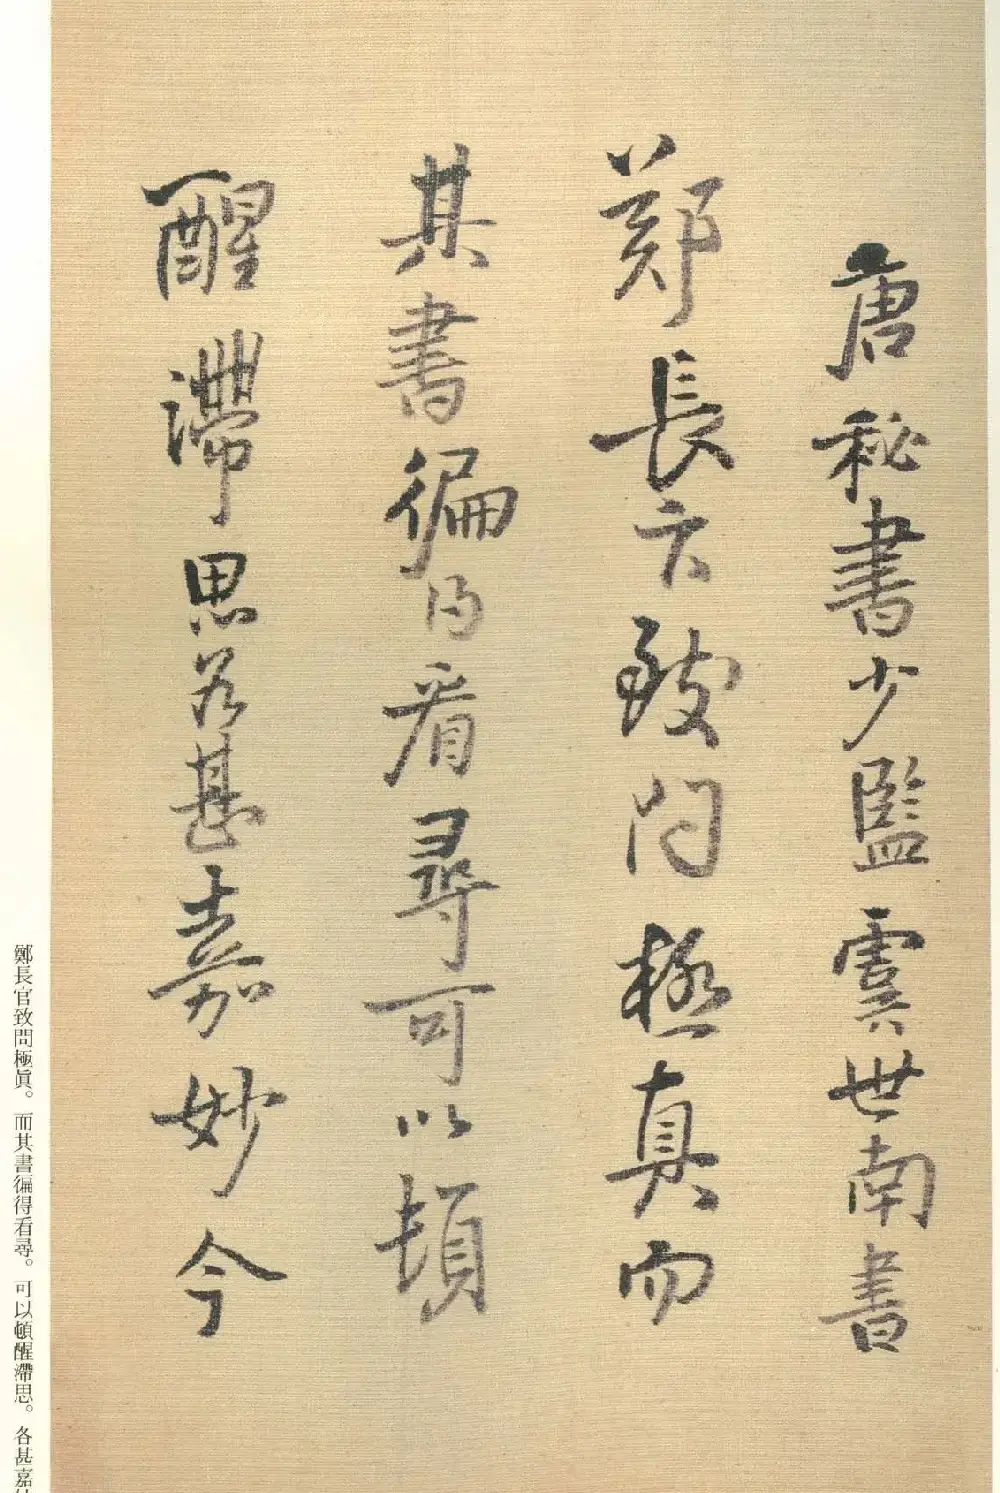 唐秘書少監虞世南書
鄭長官致問極真而
其書徧得看尋可以頓
醒滯思各甚嘉妙今
鄭長官致問極眞。而其書徧得看尋。可以頓醒滯思。各甚嘉